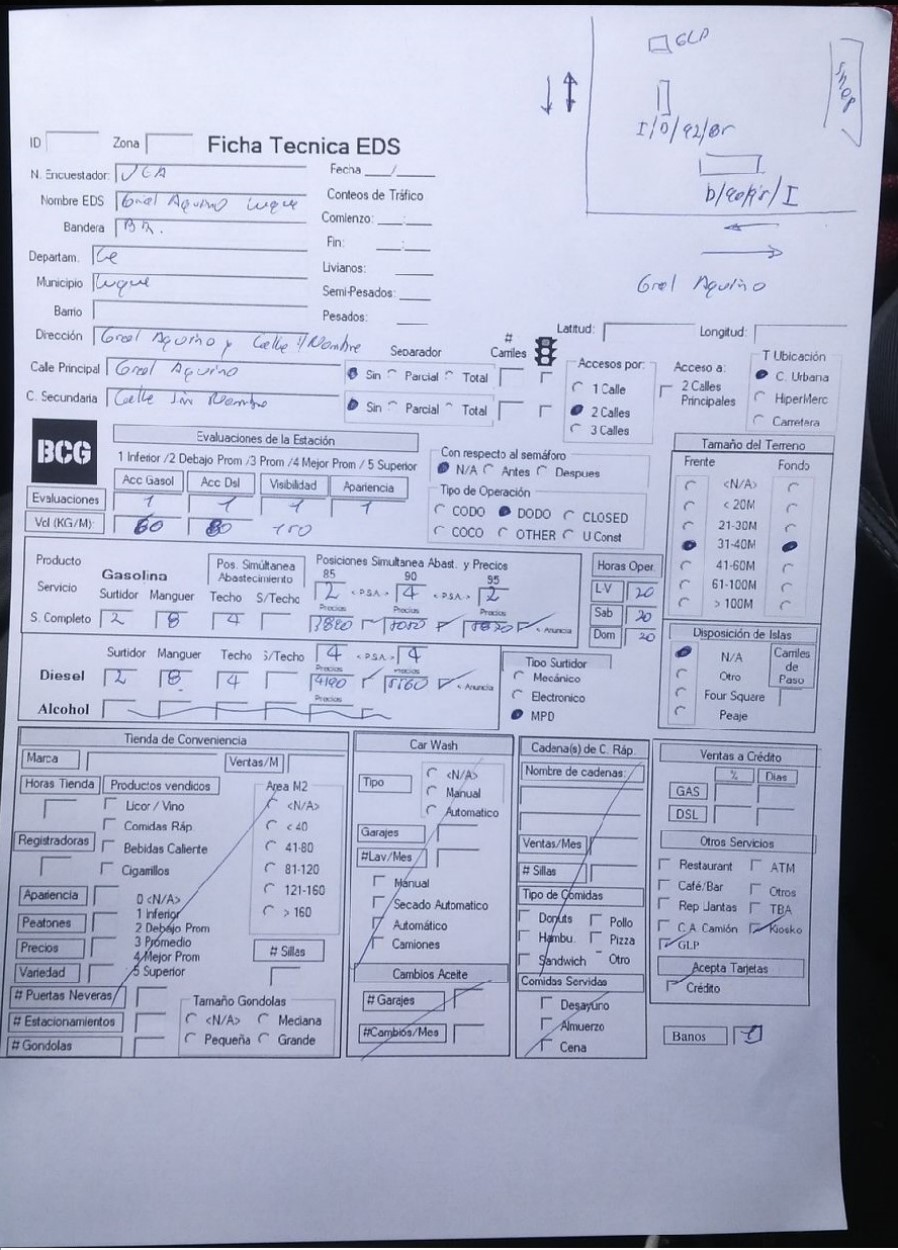 GLP
Shop
I/D/92/Br
D/90/95/I
Gral Aquino
ID Zona Ficha Tecnica EDS
N. Encuestador: Fecha ___/___
Nombre EDS Gral Aquino Luque Conteos de Tráfico
Bandera BR. Comienzo: __:__
Fin: __:__
Departam. Ce Livianos:
Municipio Luque Semi-Pesados:
Barrio Pesados:
Dirección Gral Aquino y Calle s/Nombre Latitud: Longitud:
Separador # Carriles Accesos por: Acceso a: T Ubicación
Calle Principal Gral Aquino Sin Parcial Total 1 Calle 2 Calles Principales C. Urbana
C. Secundaria Calle Sin Nombre Sin Parcial Total 2 Calles HiperMerc
3 Calles Carretera
BCG Evaluaciones de la Estación Tamaño del Terreno
1 Inferior /2 Debajo Prom /3 Prom /4 Mejor Prom / 5 Superior Con respecto al semáforo Frente Fondo
N/A Antes Despues
Acc Gasol Acc Dsl Visibilidad Apariencia Tipo de Operación
Evaluaciones 1 1 1 1 CODO DODO CLOSED
Vcl (KG/M): 60 80 150 COCO OTHER U Const
<N/A>
< 20M
21-30M
31-40M
41-60M
61-100M
> 100M
Producto Pos. Simúltanea Abastecimiento Posiciones Simultanea Abast. y Precios Horas Oper.
Servicio Gasolina 85 90 95
Surtidor Manguer Techo S/Techo 2 < P.S.A. > 4 < P.S.A. > 2 L-V 20
Precios Precios Precios Sab 20
S. Completo 2 8 4 < Anuncia Dom 20
Surtidor Manguer Techo S/Techo 4 < P.S.A. > 4 Tipo Surtidor
Precios Precios
Diesel 2 8 4 4190 < Anuncia Mecánico
Precios Electronico
Alcohol MPD
Disposición de Islas
N/A Carriles de Paso
Otro
Four Square
Peaje
Tienda de Conveniencia
Marca Ventas/M
Horas Tienda Productos vendicos Area M2
Licor / Vino <N/A>
Comidas Ráp < 40
Registradoras Bebidas Caliente 41-80
Cigarrillos 81-120
121-160
Apariencia 0 <N/A> > 160
1 Inferior
Peatones 2 Debajo Prom
Precios 3 Promedio # Sillas
4 Mejor Prom
Variedad 5 Superior
# Puertas Neveras Tamaño Gondolas
# Estacionamientos <N/A> Mediana
# Gondolas Pequeña Grande
Car Wash
Tipo <N/A>
Manual
Automatico
Garajes
#Lav/Mes
Manual
Secado Automatico
Automático
Camiones
Cambios Aceite
# Garajes
#Cambios/Mes
Cadena(s) de C. Ráp.
Nombre de cadenas:
Ventas/Mes
# Sillas
Tipo de Comidas
Donuts Pollo
Hambu. Pizza
Sandwich Otro
Comidas Servidas
Desayuno
Almuerzo
Cena
Ventas a Crédito
% Dias
GAS
DSL
Otros Servicios
Restaurant ATM
Café/Bar Otros
Rep Llantas TBA
C.A. Camión Kiosko
GLP
Acepta Tarjetas
Crédito
Banos 1